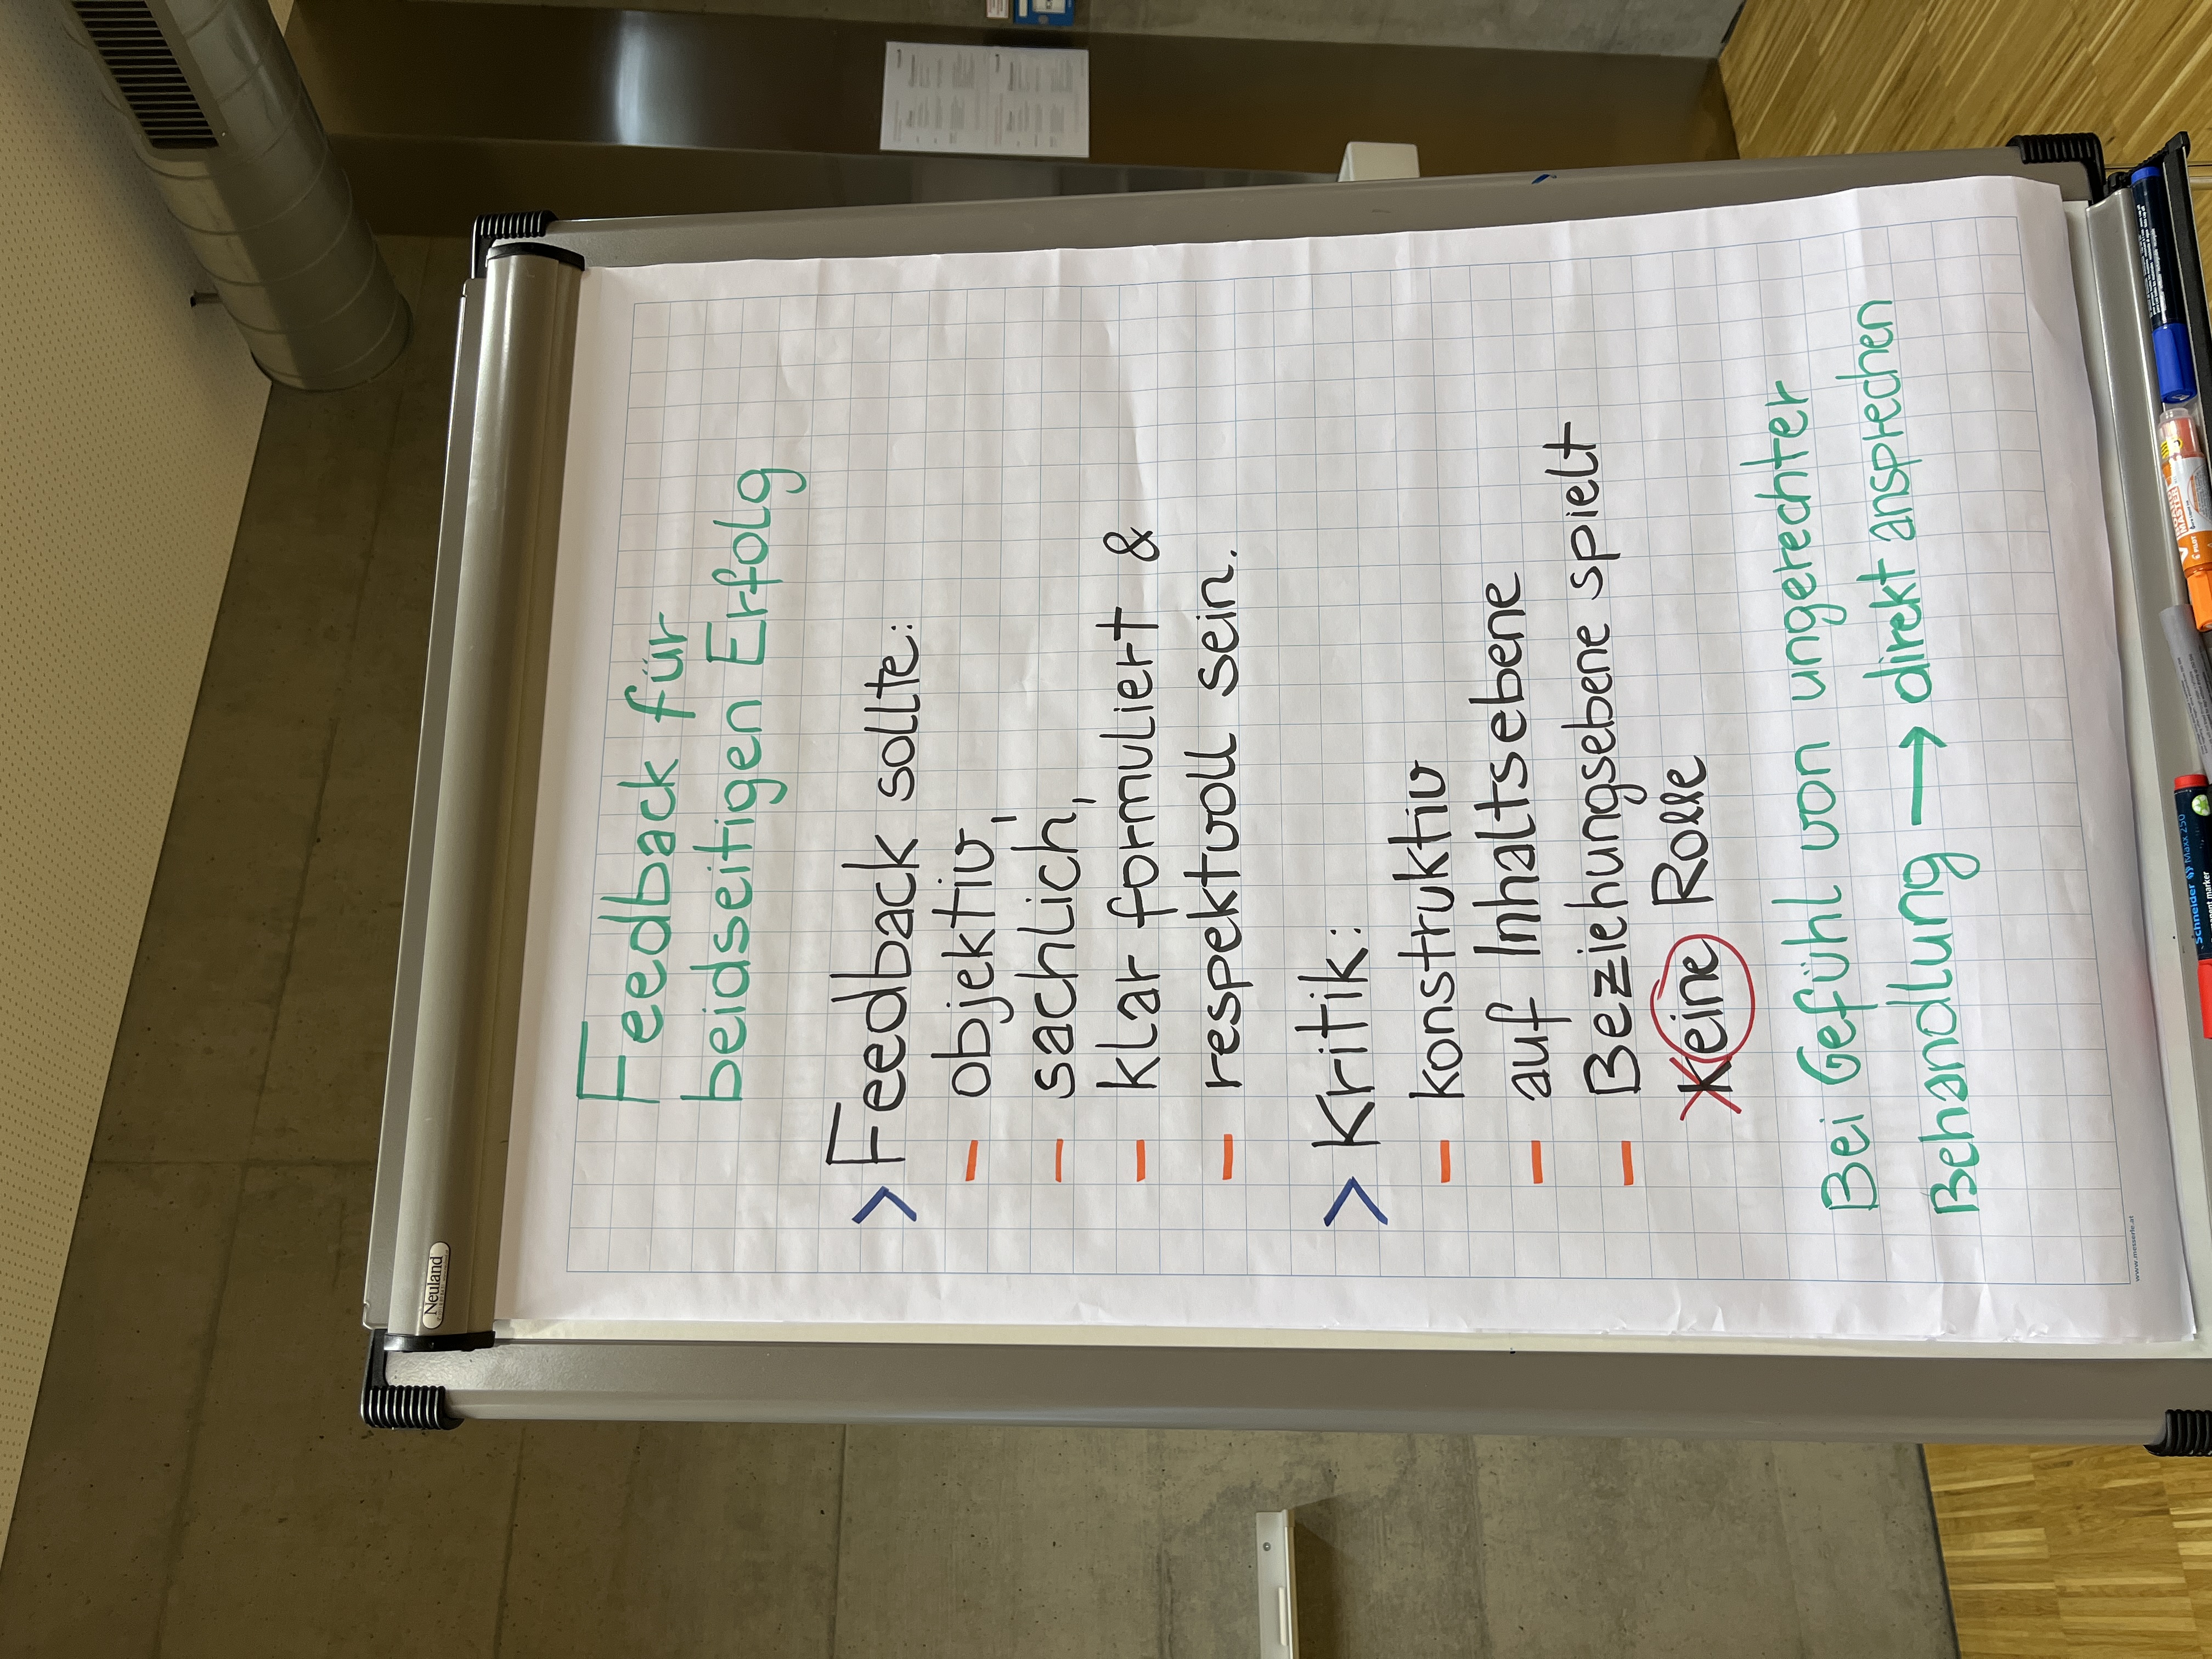 Neuland
Feedback für
beidseitigen Erfolg
> Feedback sollte:
– objektiv,
– sachlich,
– klar formuliert &
– respektvoll sein.
> Kritik:
– konstruktiv
– auf Inhaltsebene
– Beziehungsebene spielt
Keine Rolle
Bei Gefühl von ungerechter
Behandlung → direkt ansprechen
www.messerle.at
Schneider Maxx 250